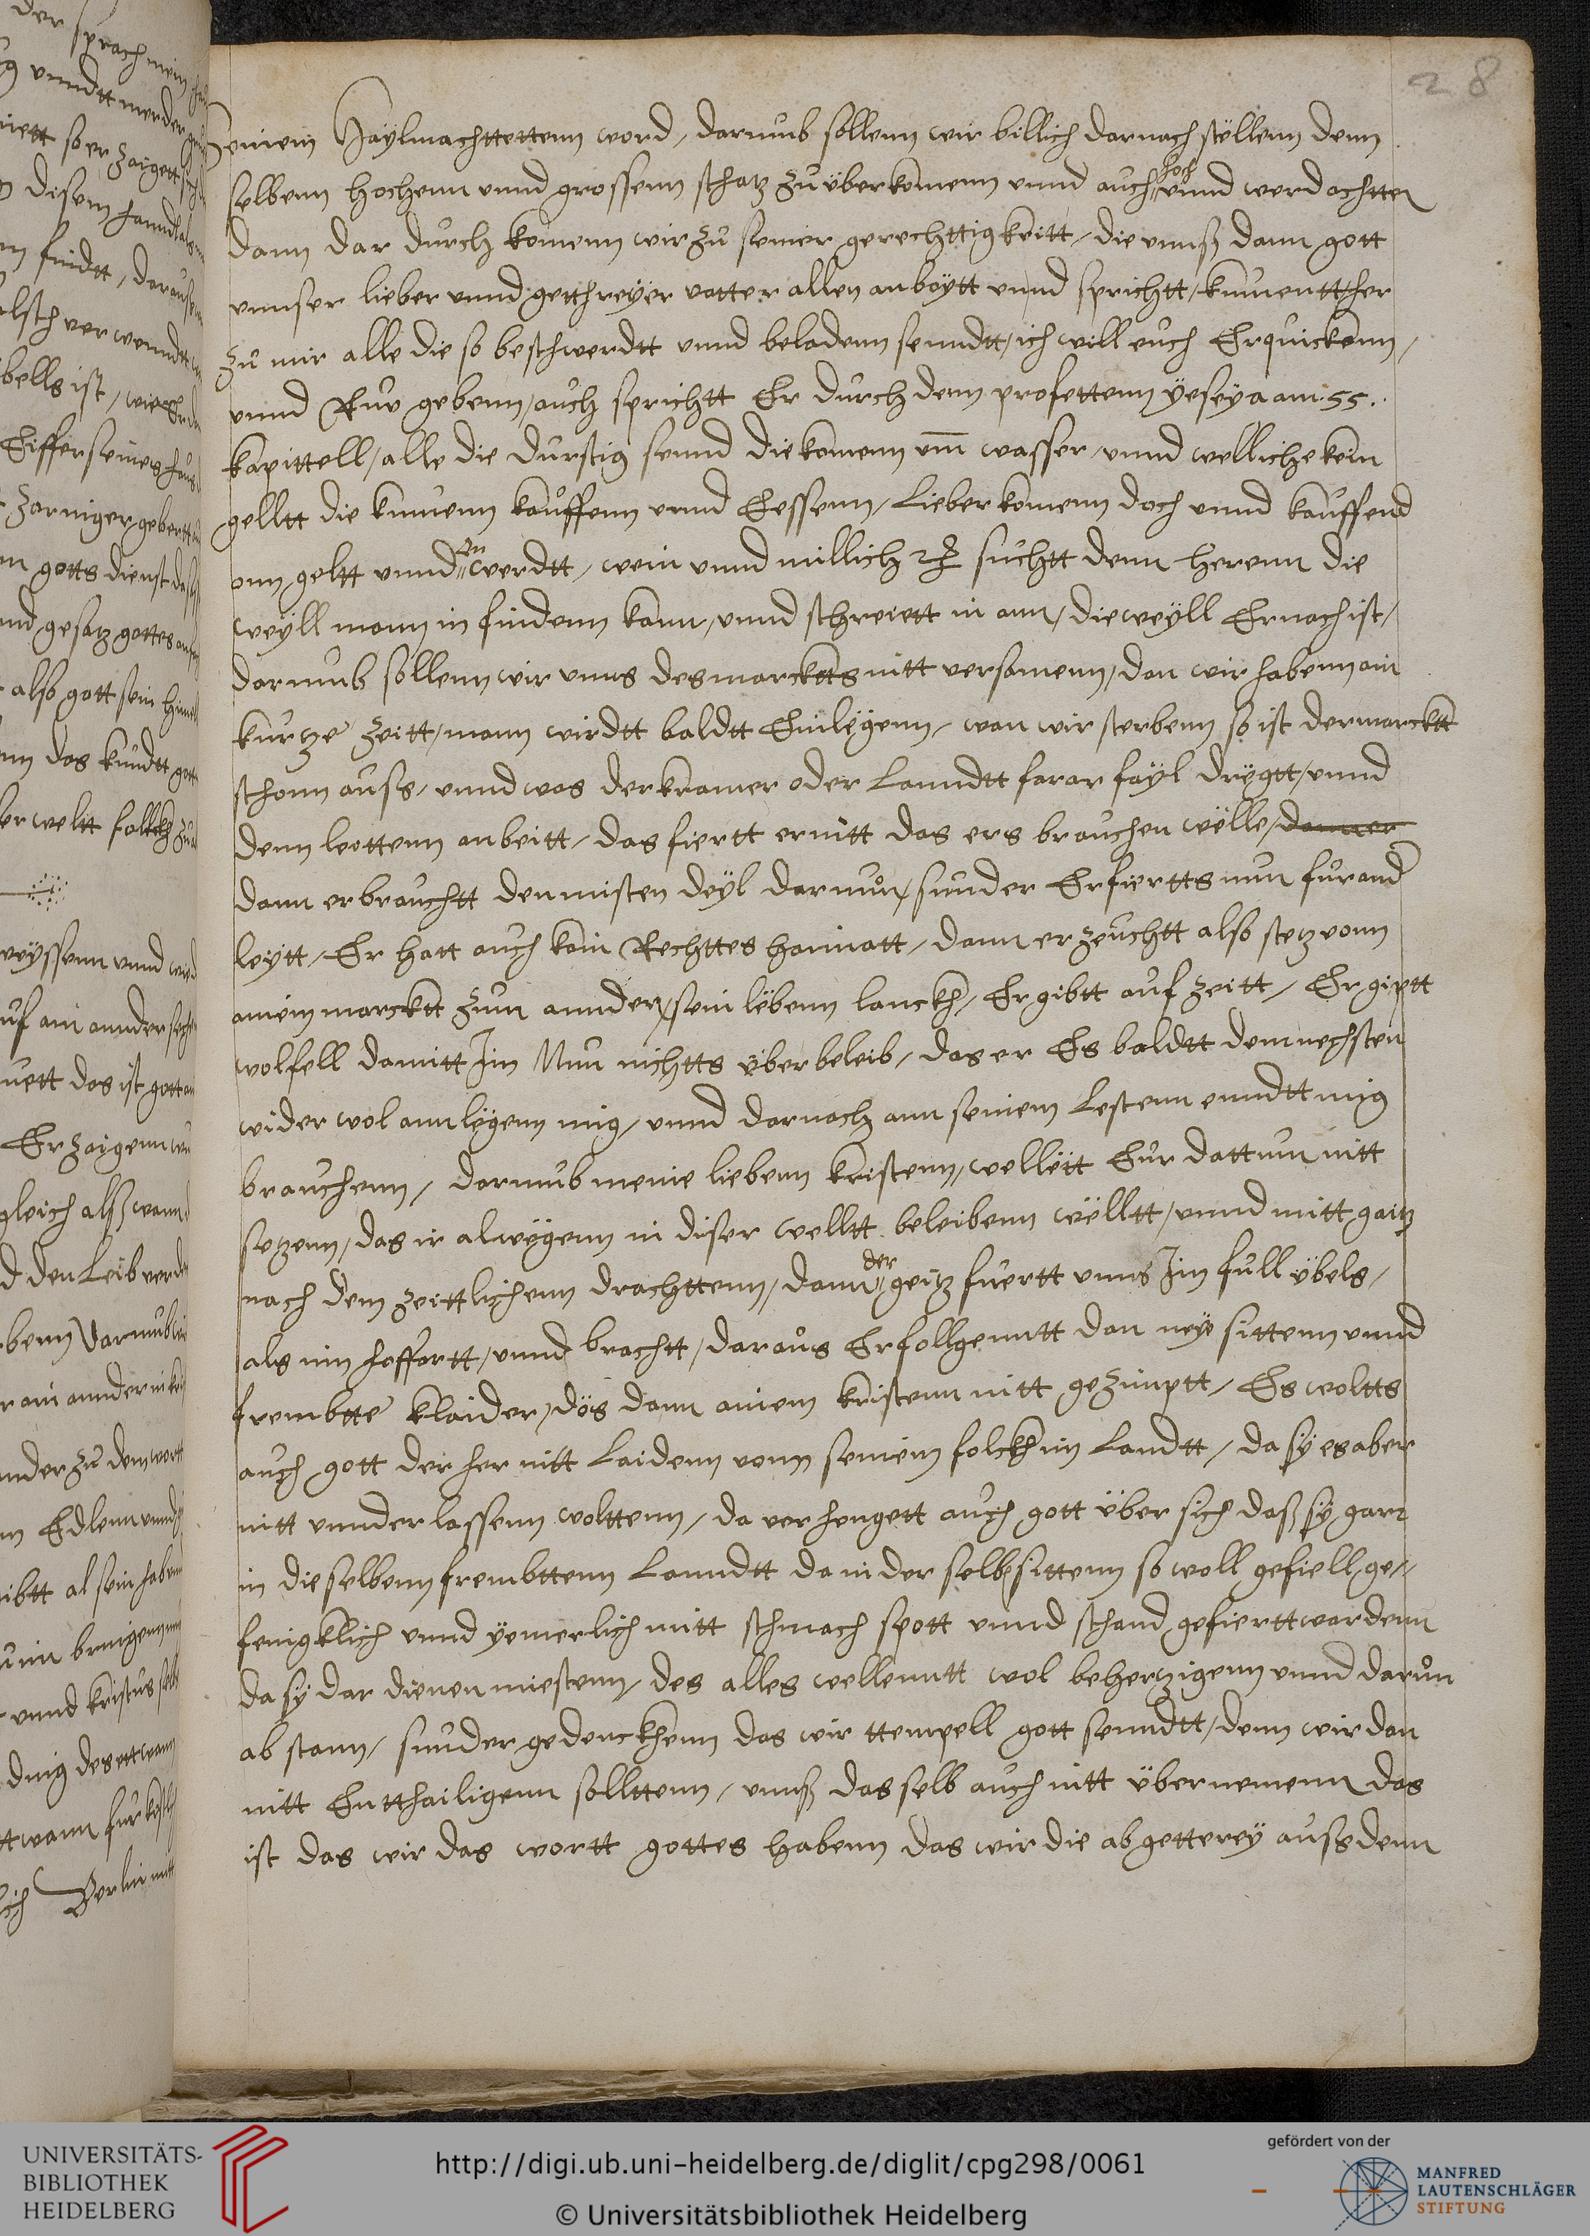 28
seinem Haÿlmachttettenn word, darumb sollenn wir billich darnach stellenn denn
selbenn hochenn unnd grossenn schatz zu überkomenn unnd auch hoch unnd werd achtten
dann dar durch komenn wir zu seiner gerechttigkeitt, die unnß dann gott
unnser lieber unnd getthreÿer vatter allen anbeÿtt unnd sprichtt, kumentt her
zu mir alle die so beschwerdtt unnd beladenn senndtt, ich will euch Erquickenn,
unnd Ruo gebenn, auch sprichtt Er durch denn profettenn ÿeseÿa am 55.
kapittell, alle die durstig sennd die komenn um wasser, unnd welliche kein
gelltt die kumenn kauffenn unnd Eessenn, Lieber komenn doch unnd kauffend
onn geltt unnd on werdtt, wein unnd millich suchtt denn herenn die
weÿll mann in findenn kann, unnd schreiett in ann, die weÿll Er nach ist,
darumb sollenn wir unns des marcktts nitt versamenn, dan wir habenn ain
kurtze zeitt, mann wirdtt baldtt Einlegenn, wan wir sterbenn so ist der marcktt
schonn auss, unnd was der kramer oder Lanndtt farar faÿl drÿgtt, unnd
denn leottenn anbeitt, das fiertt er nitt das ers brauchen wëlle, danner
dann er brauchtt den misten deÿl darvon, sunder Er fiertts nun fur and
leÿtt, Er hatt auch kain Rechttes haimatt, dann er zeuchtt also stetz vonn
ainem marcktt zum annder, sein lëbenn lanckh, Er gibtt auf zeitt, Er giptt
wolfell damitt Im Nun nichtts überbeleib, das er Es baldtt dem nechsten
wider wol annlegenn mig, unnd darnach ann seinem Lestenn enndtt mig
brauchenn, darumb meine liebenn kristenn, wellëtt Eur dattum nitt
setzenn, das ir alwegenn in diser welltt beleibenn wëlltt, unnd mitt gaitz
nach dem zeittlichenn drachttenn, dann der geitz fuertt unns Im full übels,
als inn hoffartt, unnd brachtt, daraus Erfollgenntt dan neÿe sittenn unnd
frembtte klaider, dös dann ainem kristenn nitt gezimptt, Es woltts
auch gott der her nitt Laidenn vonn seinem folckh im Landtt, da sÿ es aber
nitt unnderlassenn wolttenn, da verhengett auch gott über sich daß sÿ gar
in die selbenn frembttenn Lanndtt da in der selb sittenn so woll gefiell ge,,
fenigklich unnd ÿemerlich mitt schmach spott unnd schand gefiertt wardenn
da sÿ dar dienen miestenn, des alles wellenntt wol behertzigenn unnd darvon
ab stann, sunder gedenckhenn das wir ttempell gott senndtt, denn wir dan
nitt Enttheiligenn sollttenn, unnß das selb auch nitt übernemenn das
ist das wir das wortt gottes habenn das wir die abgettereÿ auss denn
UNIVERSITÄTS-
BIBLIOTHEK
HEIDELBERG
http://digi.ub.uni-heidelberg.de/diglit/cpg298/0061
© Universitätsbibliothek Heidelberg
gefördert von der
MANFRED
LAUTENSCHLÄGER
STIFTUNG